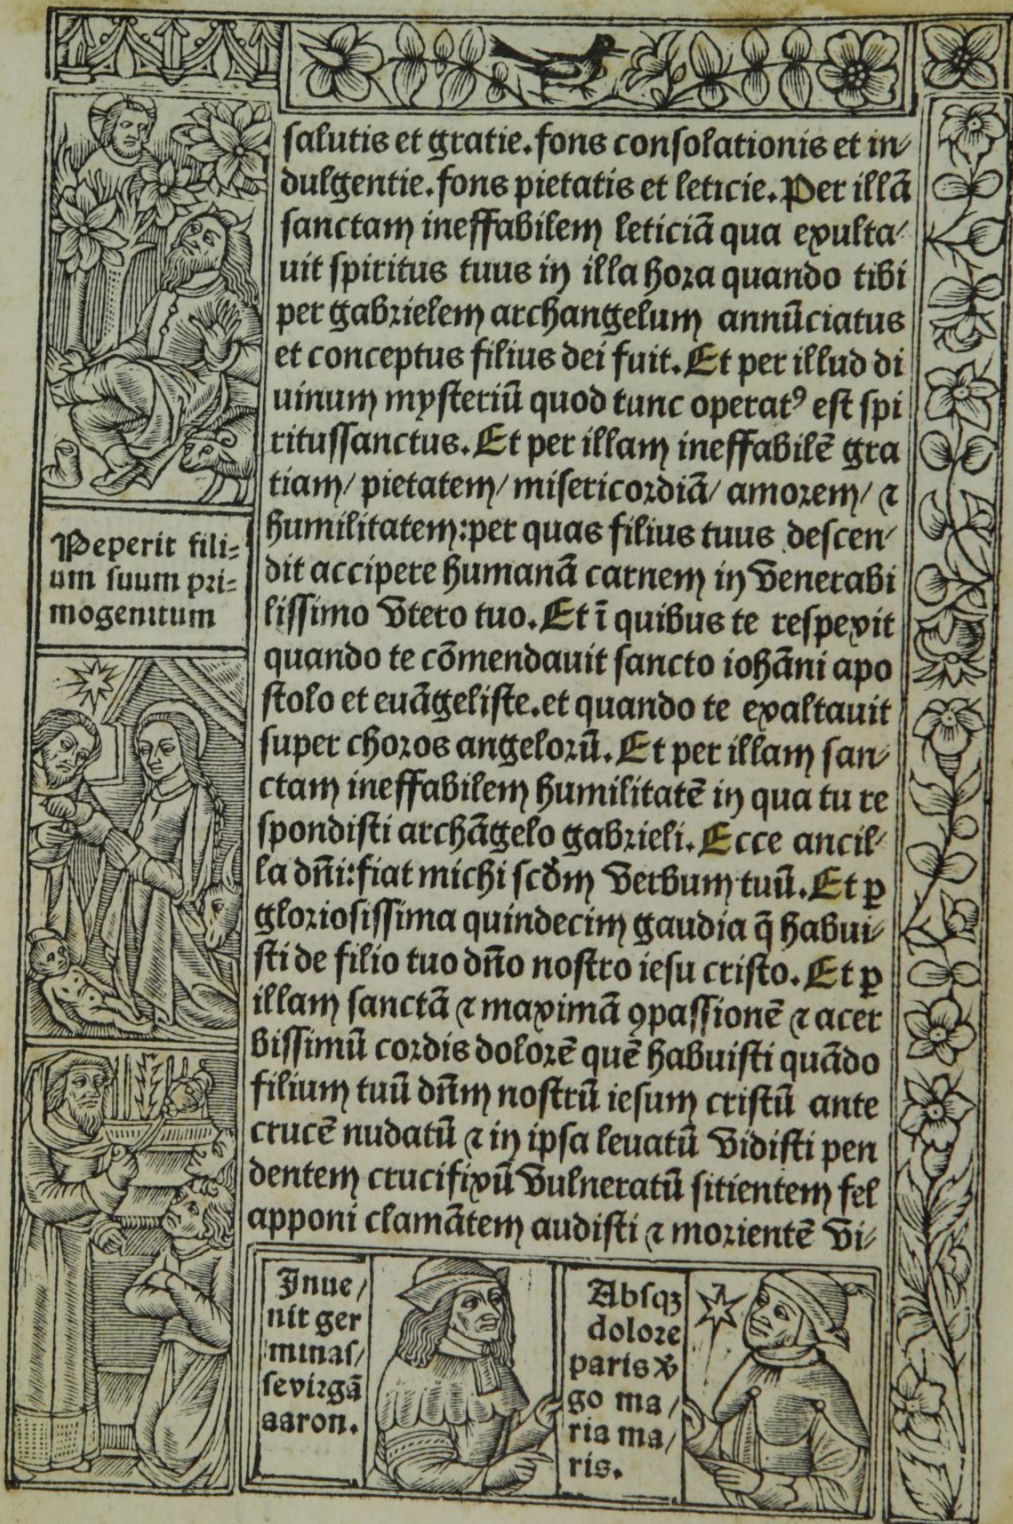 salutis et gratie. fons consolationis et in⸗
dulgentie. fons pietatis et leticie. Per illā
sanctam ineffabilem leticiā qua exulta⸗
uit spiritus tuus in illa hora quando tibi
per gabrielem archangelum annūciatus
et conceptus filius dei fuit. Et per illud di
uinum mysteriū quod tunc operatꝰ est spi
ritussanctus. Et per illam ineffabilē gra
tiam/ pietatem/ misericordiā/ amorem/ ⁊
humilitatem: per quas filius tuus descen⸗
dit accipere humanā carnem in venerabi
lissimo vtero tuo. Et ī quibus te respexit
quando te cōmendauit sancto iohāni apo
stolo et euāgeliste. et quando te exaltauit
super choros angelorū. Et per illam san⸗
ctam ineffabilem humilitatē in qua tu re
spondisti archāgelo gabrieli. Ecce ancil⸗
la dn̄i: fiat michi scd̄m verbum tuū. Et ꝑ
gloriosissima quindecim gaudia q̄ habui⸗
sti de filio tuo dn̄o nostro iesu cristo. Et ꝑ
illam sanctā ⁊ maximā ꝯpassionē ⁊ acer
bissimū cordis dolorē quē habuisti quādo
filium tuū dn̄m nostrū iesum cristū ante
crucē nudatū ⁊ in ipsa leuatū vidisti pen
dentem crucifixū vulneratū sitientem fel
apponi clamātem audisti ⁊ morientē vi⸗
Peperit fili⸗
um suum pri⸗
mogenitum
Inue/
nit ger
minas/
se virgā
aaron.
Absqꝫ
dolore
paris v̓
go ma/
ria ma/
ris.